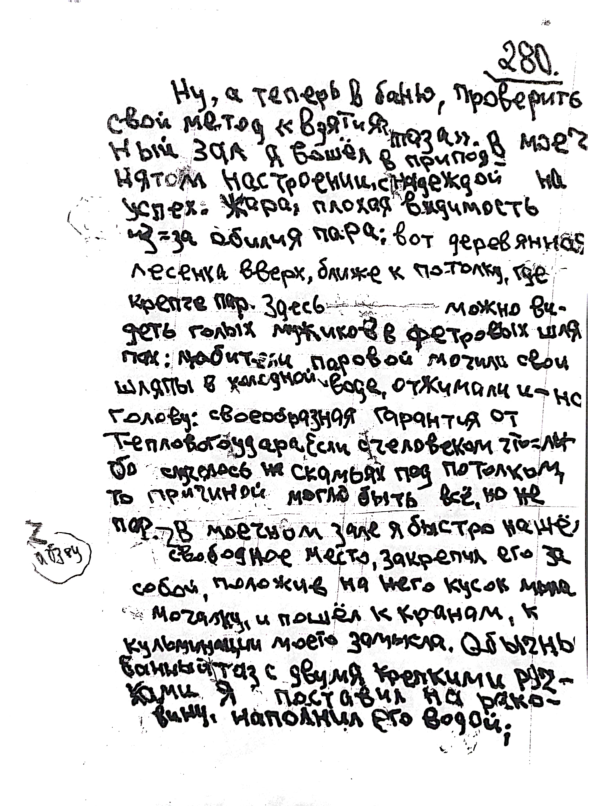 280.
Ну, а теперь в баню, проверить
свой метод к взятия таза". В моеч
ный зал я вошёл в припод-
нятом настроении, с надеждой на
успех. Жара, плохая видимость
из=за обилия пара: вот деревянная
лесенка вверх, ближе к потолку, где
крепче пар. Здесь можно ви-
деть голых мужиков в фетровых шля
пах: любители паровой мочили свои
шляпы в холодной воде, отжимали и на
голову: своеобразная гарантия от
теплового удара. Если с человеком что=ли
бо случилось на скамьях под потолком,
то причиной могло быть всё, но не
пар. В моечном зале я быстро нашё
свободное место, закрепил его за
собой, положив на него кусок мыла
мочалку, и пошёл к кранам, к
Z
абзац
кульминации моего замысла. Обычнь
банный таз с двумя крепкими руч-
ками я поставил на рако-
вину, наполнил его водой;